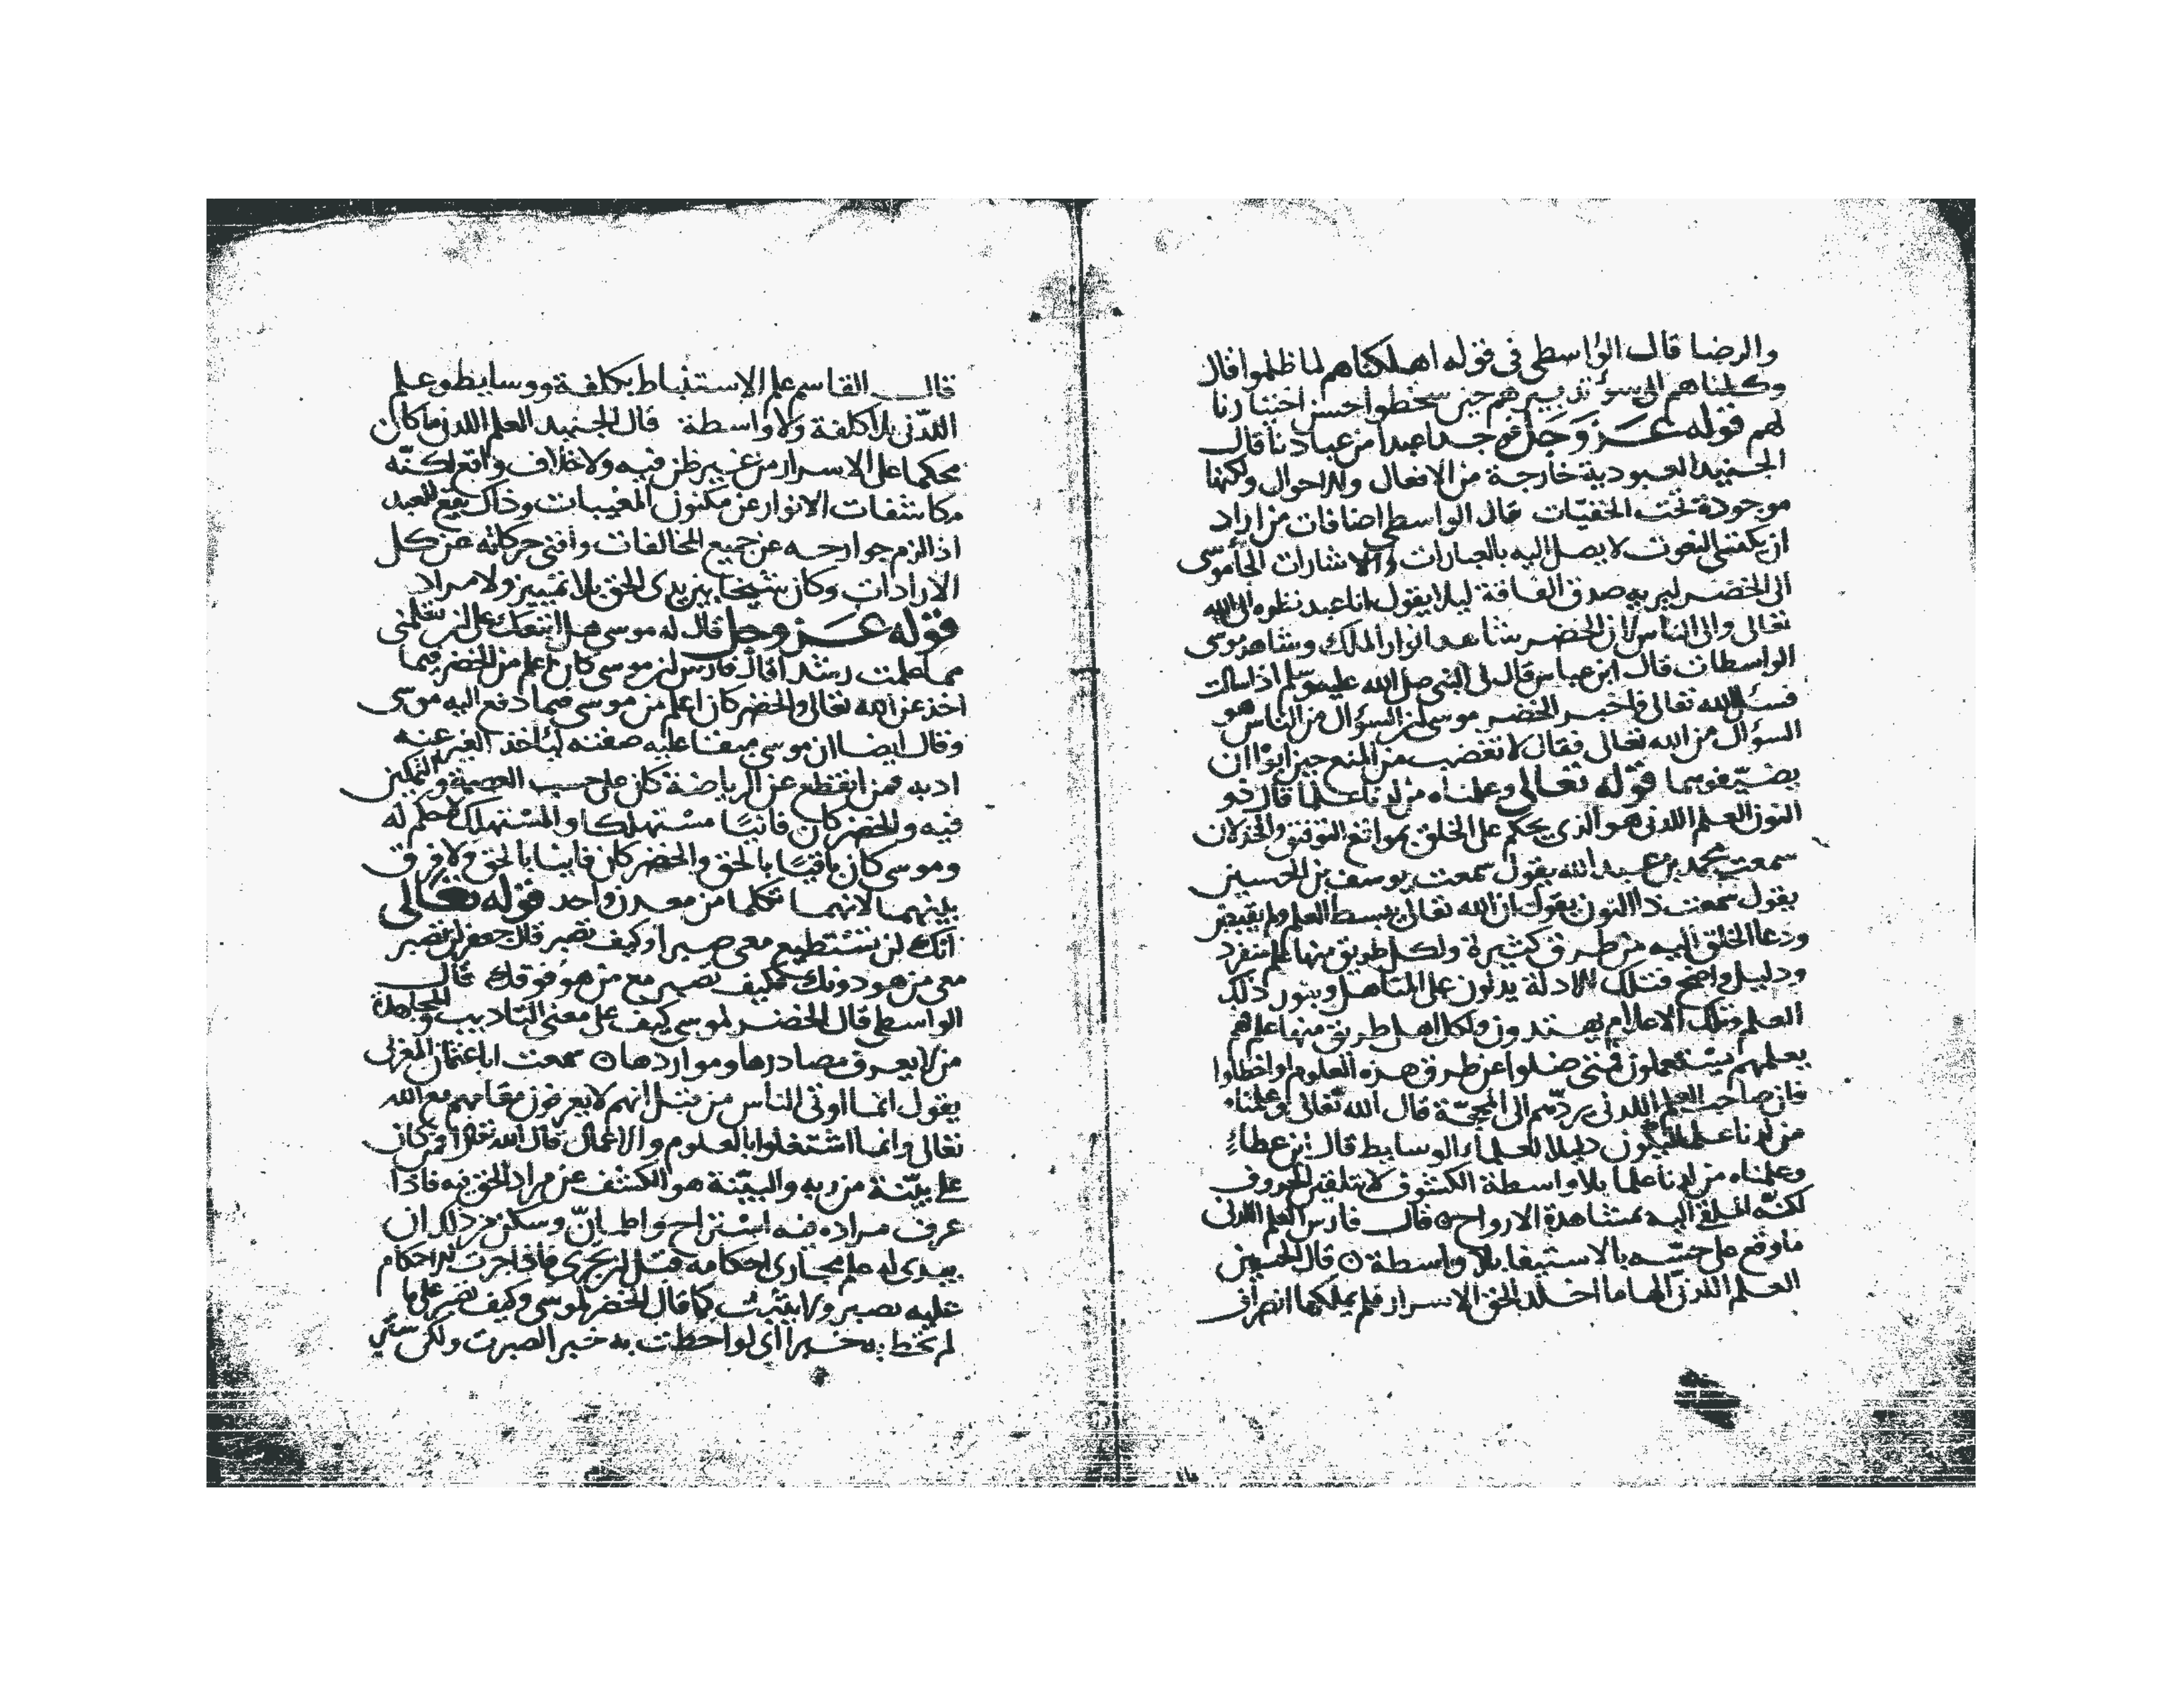 والرضا قال الواسطى فى قوله اهلكناهم لما ظلموا قال
وكلناهم الى سوء تدبيرهم حين سخطوا حسن اختيارنا
لهم قوله عز وجل فوجدا عبدا من عبادنا قال
الجنيد العبودية خارجة من الافعال والاحوال ولكنها
موجودة تحت الخفيات قال الواسطى اضافات من اراد
ان يكفنى النعوت لا يصل اليه بالعبارات والاشارات الجا موسى
الى الخضر ليريه صدق الفاقة ليلا يقول انا عبد نظره الى الله
تعالى والى الناس لان الخضر شاهد انوار الملك وشاهد موسى
الواسطات قال ابن عباس قال لى النبى صلى الله عليه وسلم اذا سالت
فسئل الله تعالى فاخبر الخضر موسى ان السؤال من الناس هو
السؤال من الله تعالى فقال لا تغضب من المنع حين ابوا ان
يضيفوهما قوله تعالى وعلمناه من لدنا علما قال ذو
النون العلم اللدنى هو الذى يحكم على الخلق بمواقع التوفيق والخذلان
سمعت محمد بن عبد الله يقول سمعت يوسف بن الحسين
يقول سمعت ذا النون يقول ان الله تعالى بسط العلم ولم يقبض
ودعا الخلق اليه من طرق كثيرة ولكل طريق منها علم منفرد
ودليل واضح فتلك الادلة يدلون على المتاهل وبنور ذلك
العلم وتلك الاعلام يهتدون ولكل اهل طريق منها علم هم
بعلمهم يستعملون فمتى ضلوا عن طرق هذه العلوم او اخطاوا
فان صاحب العلم اللدنى يردهم الى المحجة قال الله تعالى وعلمناه
من لدنا علما ليكون دليلا للعلماء الوسايط قال ابن عطاء
وعلمناه من لدنا علما بلا واسطة الكشوف لا بتلقين الحروف
لكنه الملقى اليه بمشاهدة الارواح قال فارس العلم اللدنى
ما وقع على حسه بالاستيفا بلا واسطة قال الحسين
العلم اللدنى الهاما اخلد الحق الاسرار فلم يملكها انصراف
قال القاسم علم الاستنباط بكلفة ووسايط وعلم
اللدنى بلا كلفة ولا واسطة قال الجنيد العلم اللدنى ما كان
محكما على الاسرار من غير ظن فيه ولا خلاف واقع لكنه
مكاشفات الانوار عن مكنون المغيبات وذاك يقع للعبد
اذا لزم جوارحه عن جميع المخالفات وافنى حركاته عن كل
الارادات وكان شبحا بين يدى الحق بلا تمييز ولا مراد
قوله عز وجل قال له موسى هل اتبعك على ان تعلمنى
مما علمت رشدا قال فارس ان موسى كان اعلم من الخضر فيما
اخذ عن الله تعالى والخضر كان اعلم من موسى فيما دفع اليه موسى
وقال ايضا ان موسى مبقا عليه صفته ليأخذ الغير عنه
ادبه فمن انقطع عن الرياضة كان على حسب العصمة والتمكين
فيه والخضر كان فانيا مستهلكا والمستهلك لا حكم له
وموسى كان باقيا بالحق والخضر كان فانيا بالحق ولا فرق
بينهما لانهما تكلما من معدن واحد قوله تعالى
انك لن تستطيع معى صبرا وكيف تصبر قال جعفر لن تصبر
مع من هو دونك فكيف تصبر مع من هو فوقك قال
الواسطى قال الخضر لموسى كيف على معنى التاديب والمجاهدة
من لا يعرف مصادرها ومواردها سمعت ابا عثمان المغربى
يقول انما اوتى الناس من قبل انهم لا يعرفون مقامهم مع الله
تعالى وانما اشتغلوا بالعلوم والاعمال قال الله تعالى افمن كان
على بينة من ربه والبينة هو الكشف عن مراد الحق فيه فاذا
عرف مراده فيه استراح واطمان وسكن من ذلك ان
يبدى له علم مجارى احكامه قبل ان تجرى فاذا جرت الاحكام
عليه تصبر ولا يثبت كما قال الخضر لموسى وكيف تصبر على ما
لم تحط به خبرا اى لو احطت به خبرا لصبرت ولكن ستر